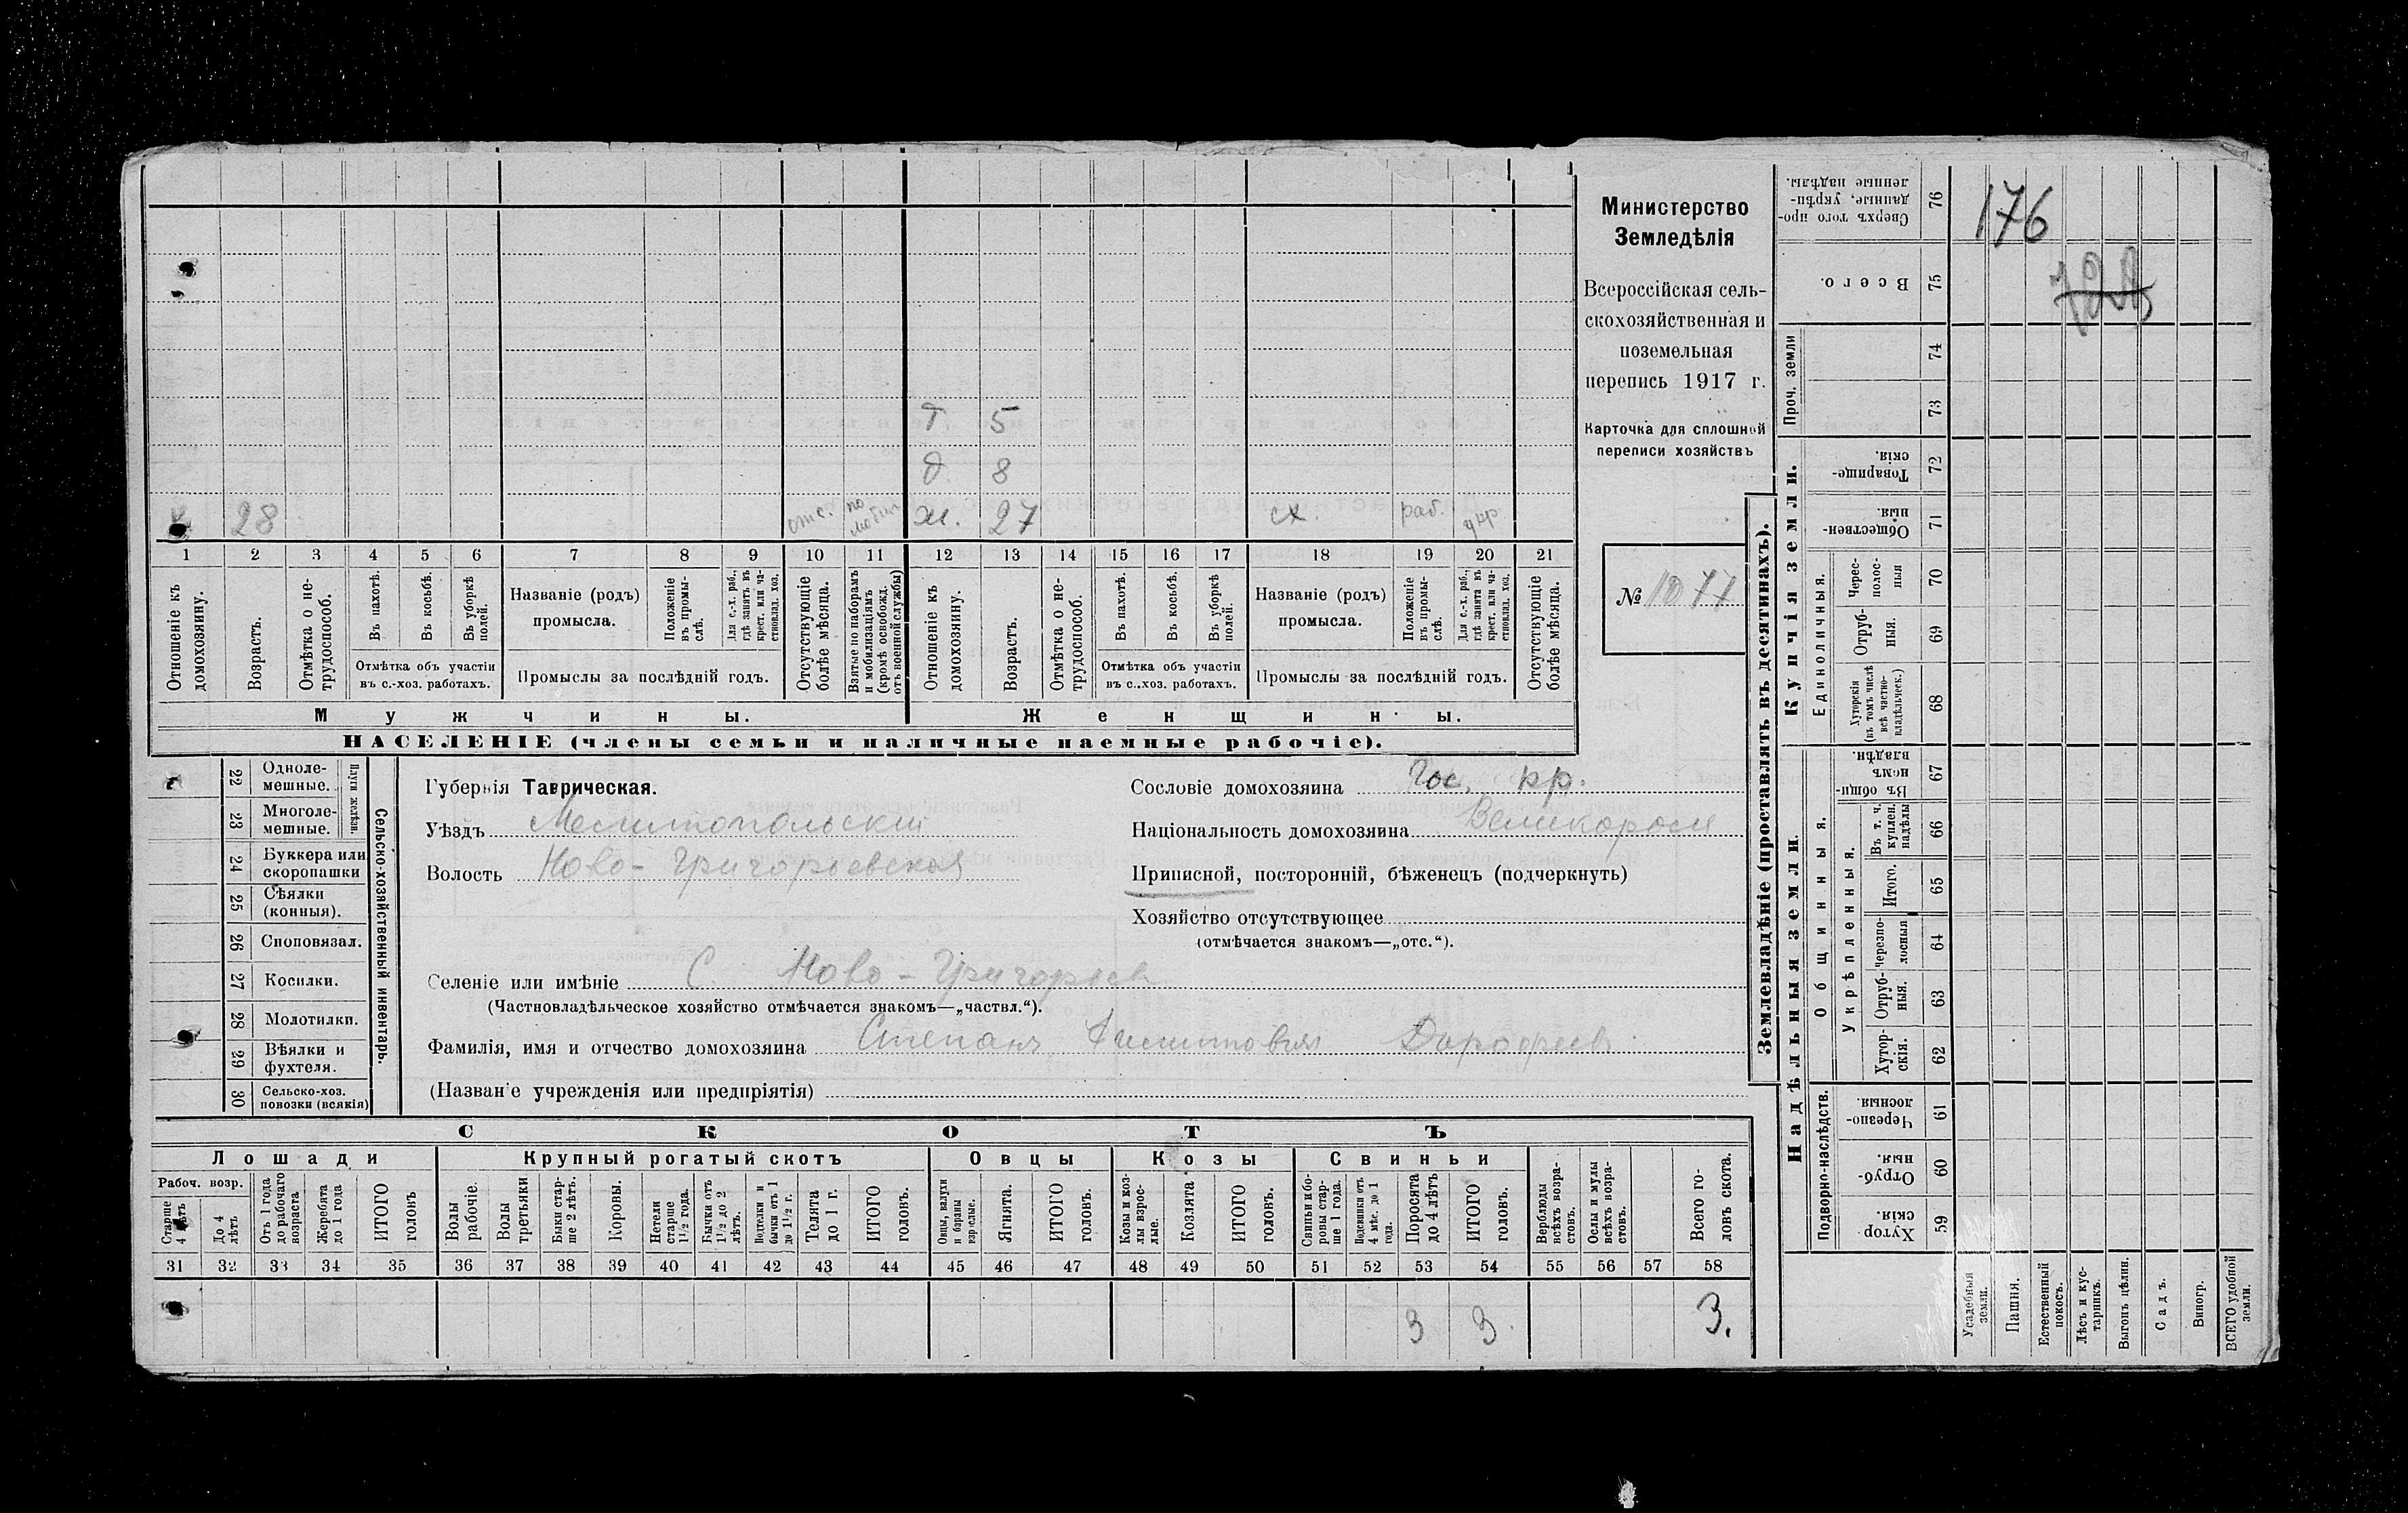 Т 5
д 8
х 28 отс. по мобил. ж. 27 сх. раб.
1 2 3 4 5 6 7 8 9 10 11 12 13 14 15 16 17 18 19 20 21
Отношеніе къ домохозяину.
Возрастъ.
Отмѣтка о не-
трудоспособ.
Въ пахотѣ.
Въ косьбѣ.
Въ уборкѣ
полей.
Отмѣтка объ участіи
въ с.-хоз. работахъ.
Названіе (родъ)
промысла.
Положеніе
въ промы-
слѣ.
Для с.-х. раб.,
гдѣ занятъ въ
крест. или ча-
стновлад. хоз.
Промыслы за послѣдній годъ.
Отсутствующіе
болѣе мѣсяца.
Взятые по наборамъ
и мобилизаціямъ
(кромѣ освобожд.
отъ военной службы)
Отношеніе къ
домохозяину.
Возрастъ.
Отмѣтка о не-
трудоспособ.
Въ пахотѣ.
Въ косьбѣ.
Въ уборкѣ
полей.
Отмѣтка объ участіи
въ с.-хоз. работахъ.
Названіе (родъ)
промысла.
Положеніе
въ промы-
слѣ.
Для с.-х. раб.,
гдѣ занята въ
крест. или ча-
стновлад. хоз.
Промыслы за послѣдній годъ.
Отсутствующіе
болѣе мѣсяца.
Мужчины. Женщины.
НАСЕЛЕНІЕ (члены семьи и наличные наемные рабочіе).
Министерство
Земледѣлія
Всероссійская сель-
скохозяйственная и
поземельная
перепись 1917 г.
Карточка для сплошной
переписи хозяйствъ
№ 1077
22 Одноле-
мешные.
Плуги желѣзн.
23 Многоле-
мешные.
24 Буккера или
скоропашки
25 Сѣялки
(конныя).
26 Сноповязал.
27 Косилки.
28 Молотилки.
29 Вѣялки и
фухтеля.
30 Сельско-хоз.
повозки (всякія)
Сельско-хозяйственный инвентарь.
Губернія Таврическая.
Уѣздъ Мелитопольский
Волость Ново-Григорьевская
Сословіе домохозяина Гос. кр.
Національность домохозяина Великоросс
Приписной, посторонній, бѣженецъ (подчеркнуть)
Хозяйство отсутствующее
(отмѣчается знакомъ—„отс.“).
Селеніе или имѣніе С. Ново-Григорьев
(Частновладѣльческое хозяйство отмѣчается знакомъ—„частвл.“).
Фамилія, имя и отчество домохозяина Степанъ Дорофеев
(Названіе учрежденія или предпріятія)
СКОТЪ
Лошади Крупный рогатый скотъ Овцы Козы Свиньи
Рабоч. возр.
Старше
4 лѣтъ
До 4
лѣтъ
Отъ 1 года
до рабочаго
возраста
Жеребята
до 1 года
ИТОГО
головъ
Волы
рабочіе.
Волы
третьяки
Быки стар-
ше 2 лѣтъ.
Коровы.
Нетели
старше
1½ года.
Бычки отъ
1½ до 2
лѣтъ.
Подтелки и
бычки отъ 1
до 1½ г.
Телята
до 1 г.
ИТОГО
головъ.
Овцы, валухи
и бараны
взрослые.
Ягнята.
ИТОГО
головъ.
Козы и коз-
лы взрос-
лые.
Козлята
ИТОГО
головъ.
Свиньи и бо-
ровы стар-
ше 1 года.
Подсвинки отъ
4 мѣс. до 1
года.
Поросята
до 4 лѣтъ
ИТОГО
головъ.
Верблюды
всѣхъ возра-
стовъ.
Ослы и мулы
всѣхъ возра-
стовъ.
Всего го-
ловъ скота.
31 32 33 34 35 36 37 38 39 40 41 42 43 44 45 46 47 48 49 50 51 52 53 54 55 56 57 58
3 3 3.
Землевладѣніе (проставлять въ десятинахъ).
Надѣльныя земли. Купчія земли.
Подворно-наслѣдств.
Общинныя.
Укрѣпленныя.
Единоличныя.
Проч. земли
Сверхъ того про-
данные, укрѣп-
ленные надѣлы. 76
Всего. 75
74
73
Товарище-
скія. 72
Обществен-
ныя. 71
Черес-
полос-
ныя 70
Отруб-
ныя. 69
Хуторскія
(въ томъ числѣ
всѣ частно-
владѣльческ.) 68
Въ общин-
номъ
владѣн. 67
Въ т. ч.
куплен.
надѣлы 66
Итого. 65
Черезпо-
лосныя 64
Отруб-
ныя. 63
Хутор-
скія. 62
Черезпо-
лосныя. 61
Отруб-
ныя. 60
Хутор
скія. 59
Усадебныя
земли.
Пашня.
Естественный
покосъ.
Лѣсъ и кус-
тарникъ.
Выгонъ цѣлин.
Садъ.
Виногр.
ВСЕГО удобной
земли.
176